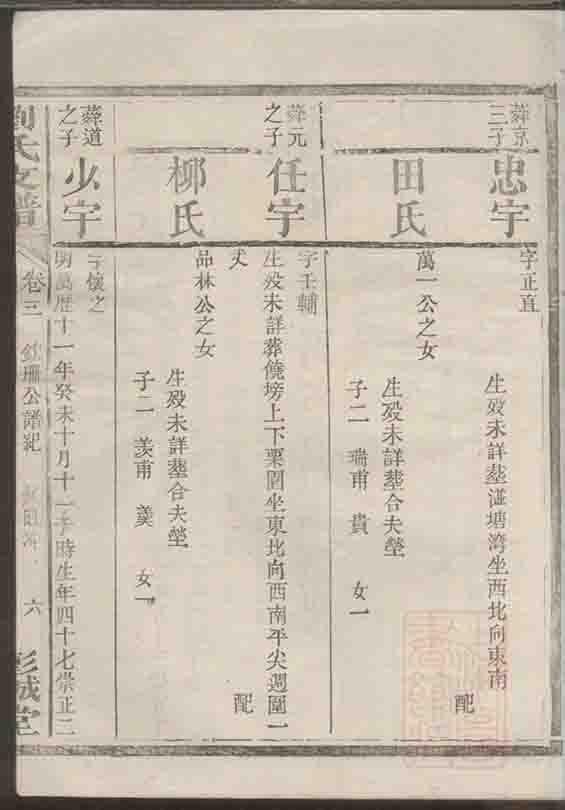 蕣京
三子
忠宇
字正直
生歿未詳塟湴塘湾坐西北向東南
配
田氏
萬一公之女
生歿未詳塟合夫塋
子二 瑞甫 貴 女一
蕣元
之子
任宇
字壬輔
生歿未詳葬僥塝上下粟園坐東北向西南平尖週圍一
丈
配
柳氏
品林公之女
生歿未詳塟合夫塋
子二 羨甫 羮 女一
蕣道
之子
少宇
字懷之
明萬歴十一年癸未十月十一子時生年四十七崇正二
劉氏支譜 卷三 公譜紀 六 彭城堂